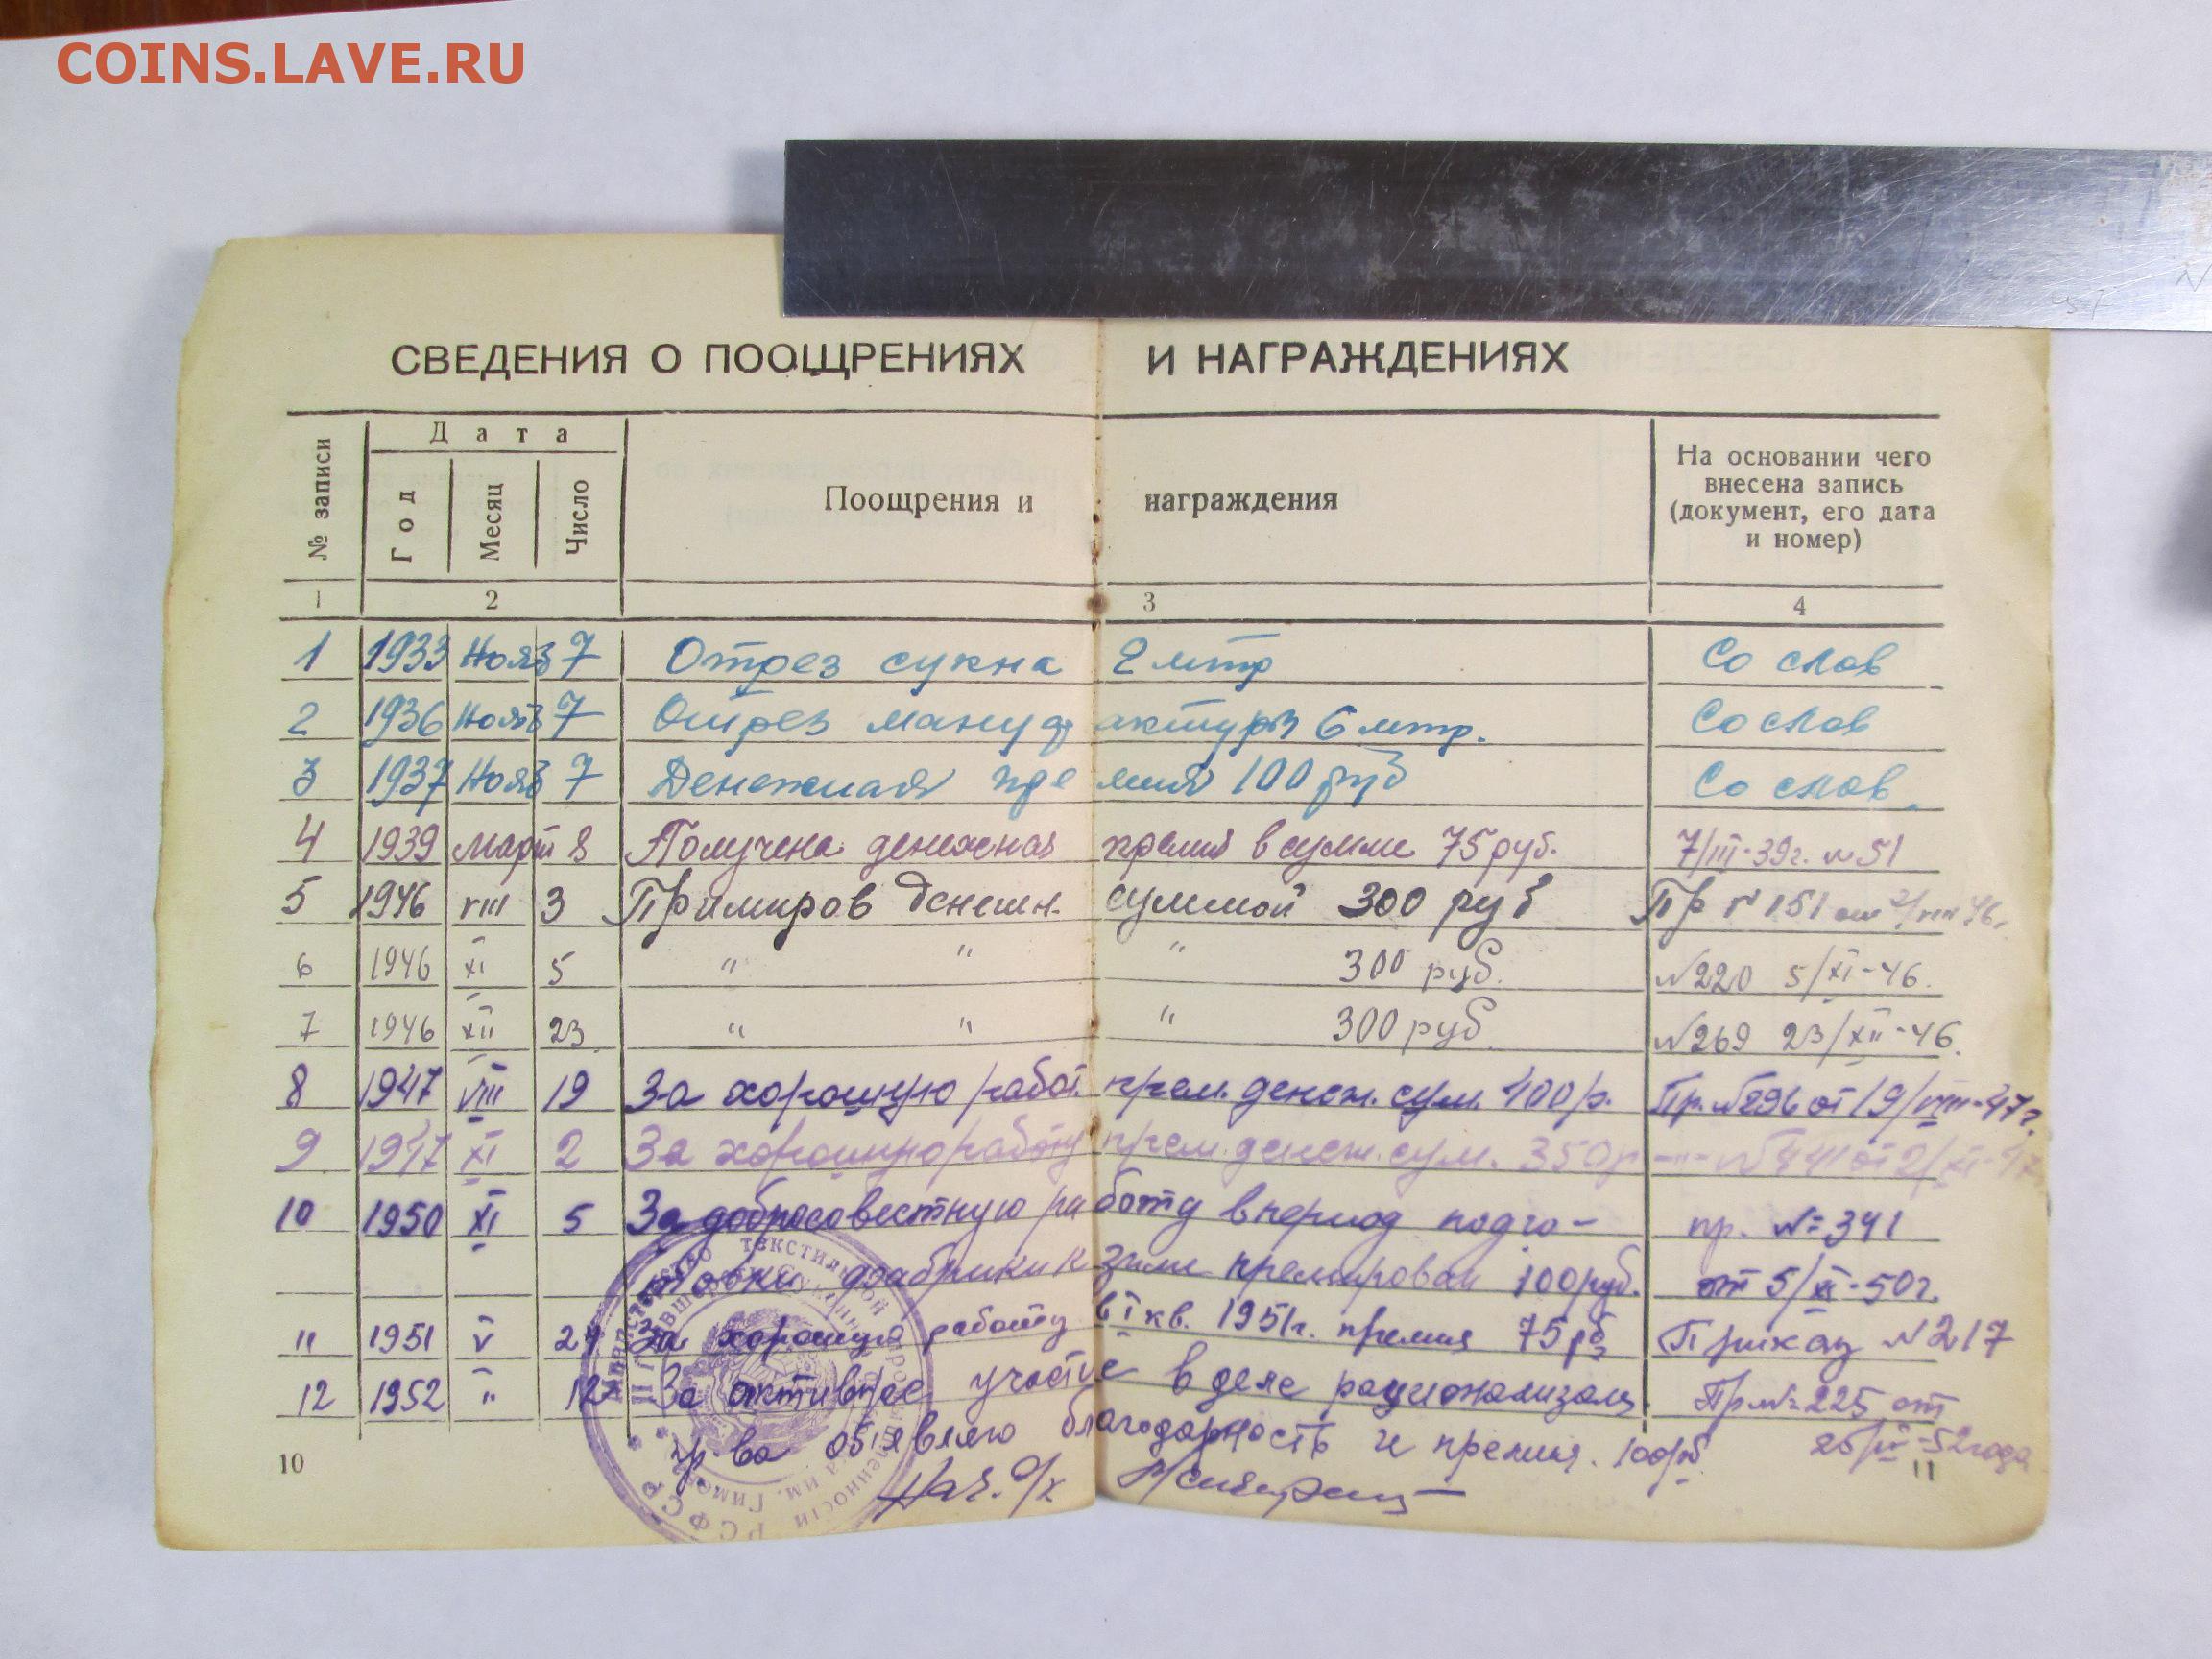 COINS.LAVE.RU
СВЕДЕНИЯ О ПООЩРЕНИЯХ И НАГРАЖДЕНИЯХ
№ записи
Дата
Год
Месяц
Число
Поощрения и награждения
На основании чего
внесена запись
(документ, его дата
и номер)
1 2 3 4
1 1933 Нояб 7 Отрез сукна 2 мтр Со слов
2 1936 Нояб 7 Отрез мануфактуры 6 мтр. Со слов
3 1937 Нояб 7 Денежная премия 100 руб Со слов.
4 1939 март 8 Получена денежная премия в сумме 75 руб. 7/III-39г. №51
5 1946 VIII 3 Примиров денежн. суммой 300 руб Пр № 151 от 2/VIII 46г
6 1946 XI 5 " " " 300 руб. №220 5/XI-46.
7 1946 XII 23 " " " 300 руб. №269 23/XII-46.
8 1947 VIII 19 За хорошую работ. прем. денеж. сум. 400 р. Пр. №296 от 19/VIII-47г.
9 1947 XI 2 За хорошую работу прем. денеж. сум. 350 р —"— №441 от 2/XI-47
10 1950 XI 5 За добросовестную работу в период подго- пр. №=341
товки фабрики к зиме премирован 100 руб. от 5/XI-50г.
11 1951 V 24 За хорошую работу в I кв. 1951г. премия 75 рб Приказ №217
12 1952 " 12 За активное участие в деле рационализац Пр №=225 от
пр-ва объявлено благодарность и премия. 100 рб
10
Нач. о/к
МИНИСТЕРСТВО ТЕКСТИЛЬНОЙ ПРОМЫШЛЕННОСТИ РСФСР